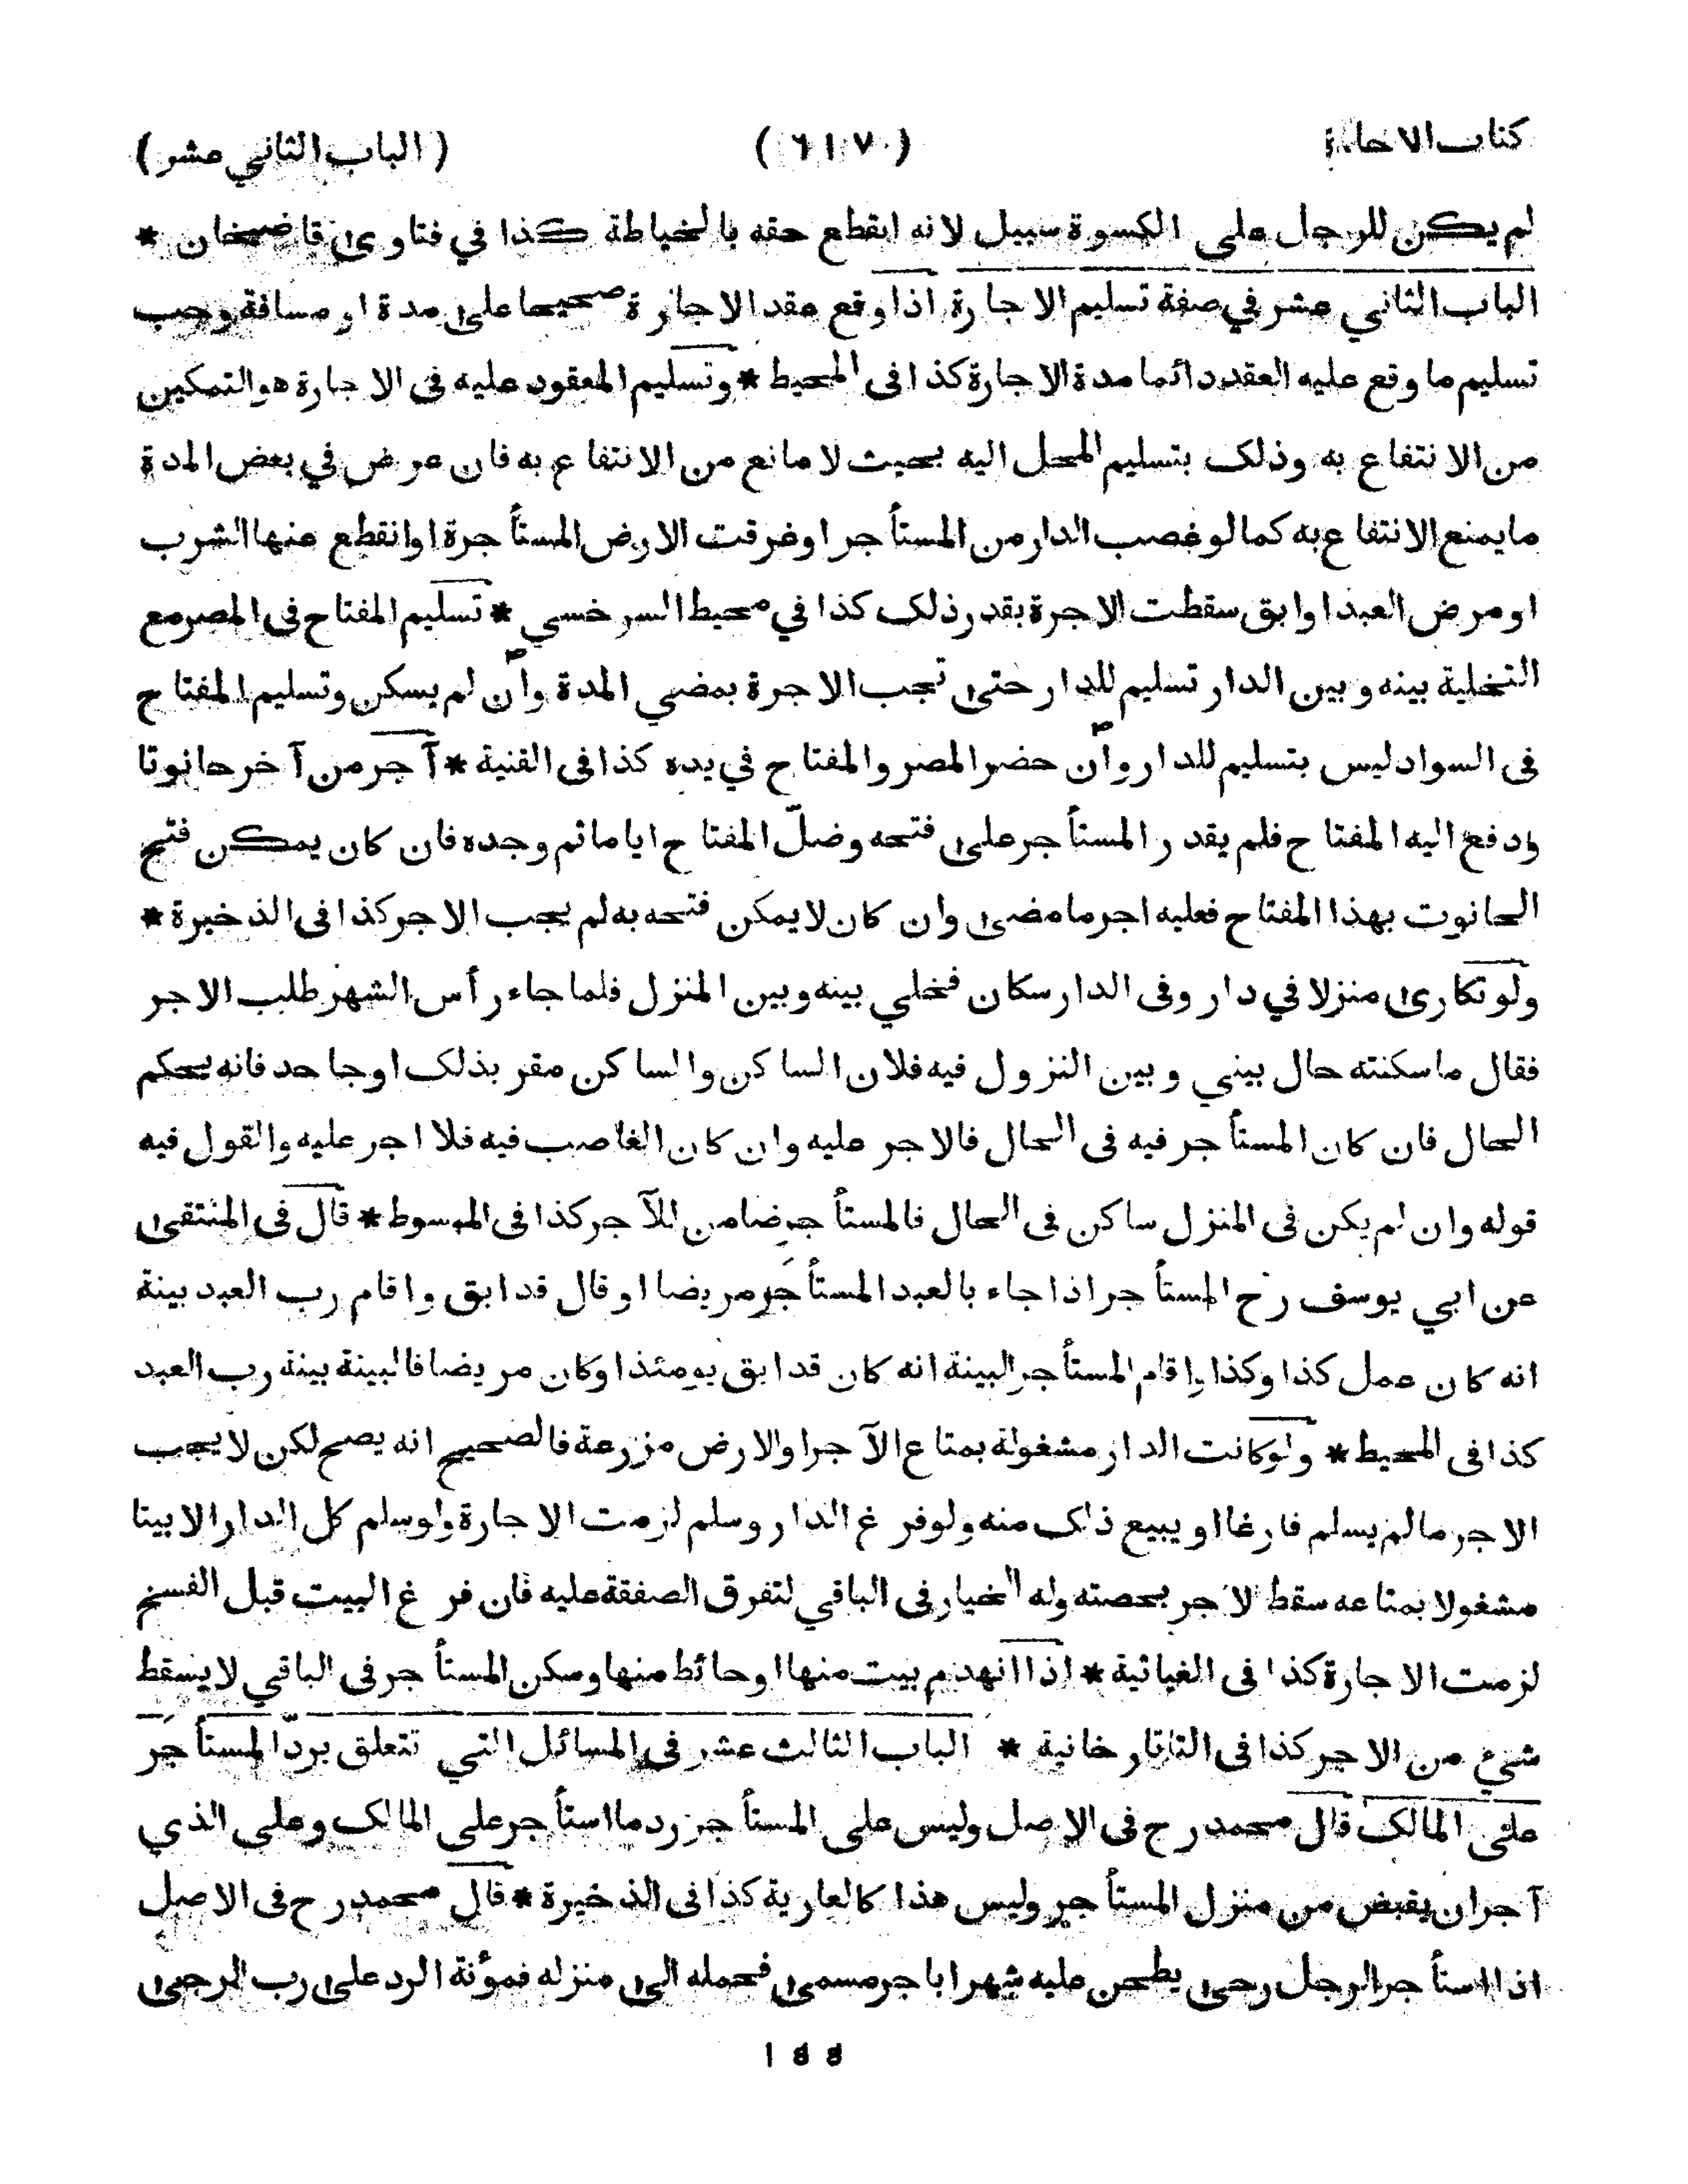 كتاب الاجارة (٦١٧) (الباب الثاني عشر)
لم يكن للرجل على الكسوة سبيل لانه انقطع حقه بالخياطة كذا في فتاوى قاضيخان *
الباب الثاني عشر في صفة تسليم الاجارة اذا وقع عقد الاجارة صحيحا على مدة او مسافة وجب
تسليم ما وقع عليه العقد دائما مدة الاجارة كذا فى المحيط * وتسليم المعقود عليه فى الاجارة هو التمكين
من الانتفاع به وذلك بتسليم المحل اليه بحيث لا مانع من الانتفاع به فان عرض في بعض المدة
ما يمنع الانتفاع به كما لو غصب الدار من المستأجر او غرقت الارض المستأجرة او انقطع عنها الشرب
او مرض العبد او ابق سقطت الاجرة بقدر ذلك كذا في محيط السرخسي * تسليم المفتاح فى المصر مع
التخلية بينه وبين الدار تسليم للدار حتى تجب الاجرة بمضي المدة وان لم يسكن وتسليم المفتاح
فى السواد ليس بتسليم للدار وان حضر المصر والمفتاح في يده كذا فى القنية * آجر من آخر حانوتا
ودفع اليه المفتاح فلم يقدر المستأجر على فتحه وضلّ المفتاح اياما ثم وجده فان كان يمكن فتح
الحانوت بهذا المفتاح فعليه اجر ما مضى وان كان لا يمكن فتحه به لم يجب الاجر كذا فى الذخيرة *
ولو تكارى منزلا في دار وفى الدار سكان فخلي بينه وبين المنزل فلما جاء رأس الشهر طلب الاجر
فقال ما سكنته حال بيني وبين النزول فيه فلان الساكن والساكن مقر بذلك او جاحد فانه يحكم
الحال فان كان المستأجر فيه فى الحال فالاجر عليه وان كان الغاصب فيه فلا اجر عليه والقول فيه
قوله وان لم يكن فى المنزل ساكن فى الحال فالمستأجر ضامن للآجر كذا فى المبسوط * قال فى المنتقى
عن ابي يوسف رح المستأجر اذا جاء بالعبد المستأجَر مريضا او قال قد ابق واقام رب العبد بينة
انه كان عمل كذا وكذا واقام المستأجر البينة انه كان قد ابق يومئذ او كان مريضا فالبينة بينة رب العبد
كذا فى المحيط * ولو كانت الدار مشغولة بمتاع الآجر او الارض مزرعة فالصحيح انه يصح لكن لا يجب
الاجر ما لم يسلم فارغا او يبيع ذلك منه ولو فرغ الدار وسلم لزمت الاجارة ولو سلم كل الدار الا بيتا
مشغولا بمتاعه سقط الاجر بحصته وله الخيار فى الباقي لتفرق الصفقة عليه فان فرغ البيت قبل الفسخ
لزمت الاجارة كذا فى الغياثية * اذا انهدم بيت منها او حائط منها وسكن المستأجر فى الباقي لا يسقط
شيء من الاجر كذا فى التاتارخانية * الباب الثالث عشر فى المسائل التي تتعلق بردّ المستأجَر
على المالك قال محمد رح فى الاصل وليس على المستأجر رد ما استأجر على المالك وعلى الذي
آجر ان يقبض من منزل المستأجر وليس هذا كالعارية كذا فى الذخيرة * قال محمد رح فى الاصل
اذا استأجر الرجل رحى يطحن عليه شهرا باجر مسمى فحمله الى منزله فمؤنة الرد على رب الرحى